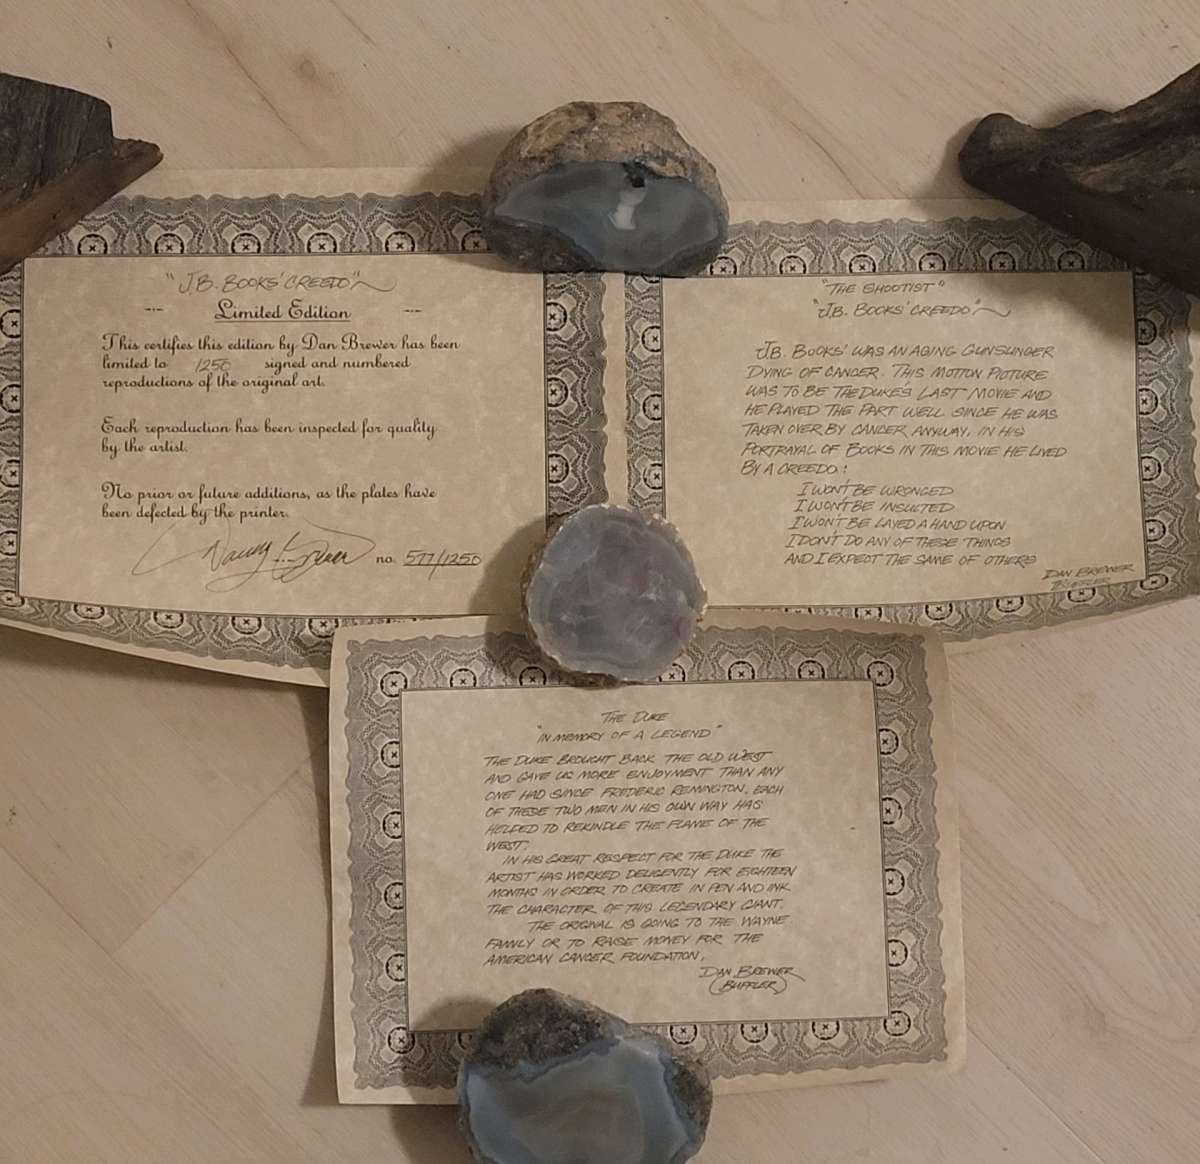 "J.B. BOOKS' CREEDO"
Limited Edition
This certifies this edition by Dan Brewer has been
limited to 1250 signed and numbered
reproductions of the original art.
Each reproduction has been inspected for quality
by the artist.
No prior or future additions, as the plates have
been defected by the printer.
no. 577/1250
"THE SHOOTIST"
"J.B. BOOKS' CREEDO"
J.B. BOOKS' WAS AN AGING GUNSLINGER
DYING OF CANCER. THIS MOTION PICTURE
WAS TO BE THE DUKE'S LAST MOVIE AND
HE PLAYED THE PART WELL SINCE HE WAS
TAKEN OVER BY CANCER ANYWAY. IN HIS
PORTRAYAL OF BOOKS IN THIS MOVIE HE LIVED
BY A CREEDO:
I WON'T BE WRONGED
I WON'T BE INSULTED
I WON'T BE LAYED A HAND UPON
I DON'T DO ANY OF THESE THINGS
AND I EXPECT THE SAME OF OTHERS
DAN BREWER
BUFFLER
THE DUKE
"IN MEMORY OF A LEGEND"
THE DUKE BROUGHT BACK THE OLD WEST
AND GAVE US MORE ENJOYMENT THAN ANY
ONE HAD SINCE FREDERIC REMINGTON. EACH
OF THESE TWO MEN IN HIS OWN WAY HAS
HELPED TO REKINDLE THE FLAME OF THE
WEST.
IN HIS GREAT RESPECT FOR THE DUKE THE
ARTIST HAS WORKED DELIGENTLY FOR EIGHTEEN
MONTHS IN ORDER TO CREATE IN PEN AND INK
THE CHARACTER OF THIS LEGENDARY GIANT.
THE ORIGINAL IS GOING TO THE WAYNE
FAMILY OR TO RAISE MONEY FOR THE
AMERICAN CANCER FOUNDATION.
DAN BREWER
(BUFFLER)